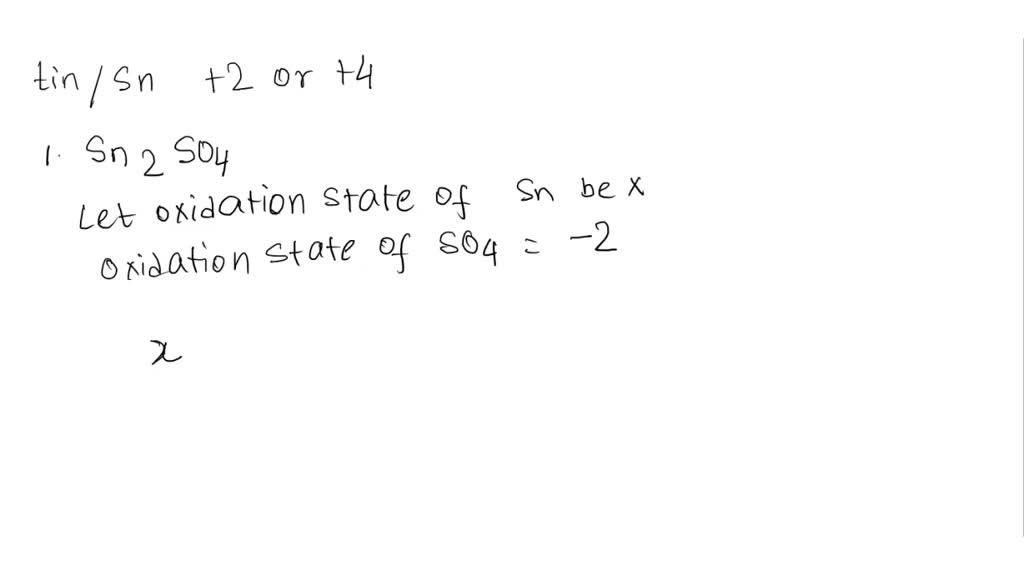 tin/Sn +2 or +4
1. Sn2 SO4
Let oxidation state of Sn be x
oxidation state of SO4 = -2
x